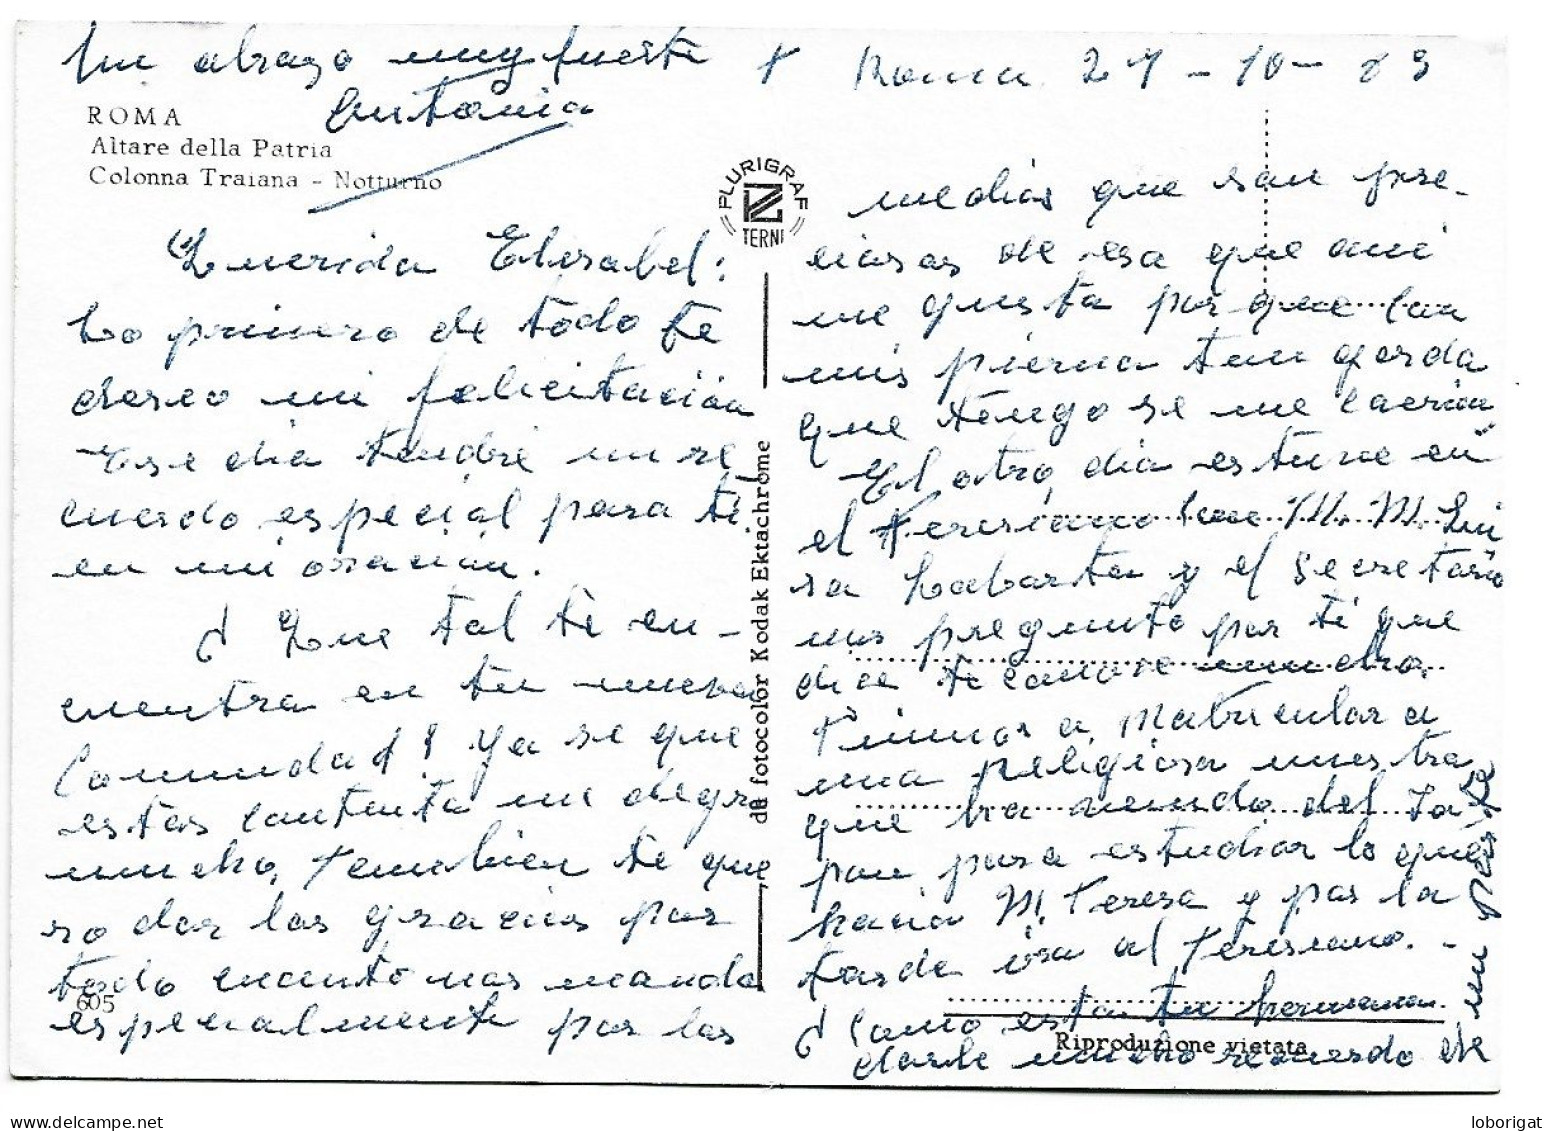 + Roma 27-10-83
Querida Elisabel:
Lo primero de todo te
deseo mi felicitación
Ese dia tendré un re_
cuerdo especial para ti.
en mi oración.
¿Que tal te en-
cuentra en tu nueva
Comunidad? Ya se que
estas contenta me alegro
mucho, tembien te que
ro dar las gracias por
todo cuanto nos mandas
especialmente por las
medias que son pre-
ciosas de esa que a mi
me gusta porque con
mis pierna tan gorda
que tengo se me caerian
El otro dia estuve en
el Teresiano con M. M. Lui
sa Labarta y el Secretario
nos pregunto por ti que
dice te conoce mucho.
Fuimos a Matricular a
una religiosa nuestra
que ha venido del Ja
pon, para estudiar lo que
hacia M. Teresa y por la
tarde ira al Teresiano. -
¿Como esta tu hermana.
darle mucho recuerdo de
mi parte
Un abrazo muy fuerte
Antonia
ROMA
Altare della Patria
Colonna Traiana - Notturno
PLURIGRAF
TERNI
da fotocolor Kodak Ektachrome
605
Riproduzione vietata
www.delcampe.net
loborigat